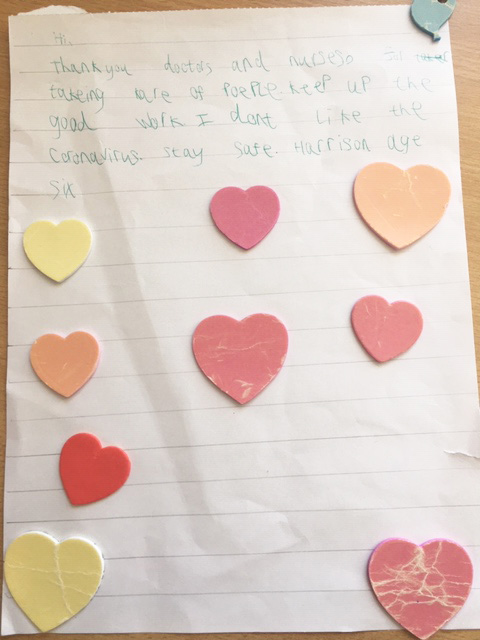 Hi,
Thankyou doctors and nurseso for
takeing care of PoePle keep up the
good work I dont like the
Coronavirus. stay safe. Harrison age
six